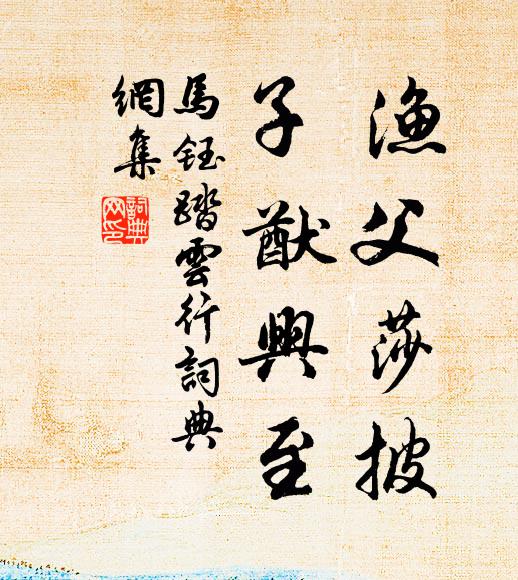 漁父莎披
子猷興至
馬鈺踏雲行詞典
網集
詞典
网印